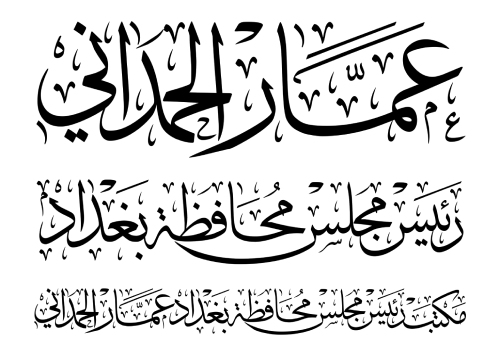 عمّار الحمداني
رئيس مجلس محافظة بغداد
مكتب رئيس مجلس محافظة بغداد عمّار الحمداني